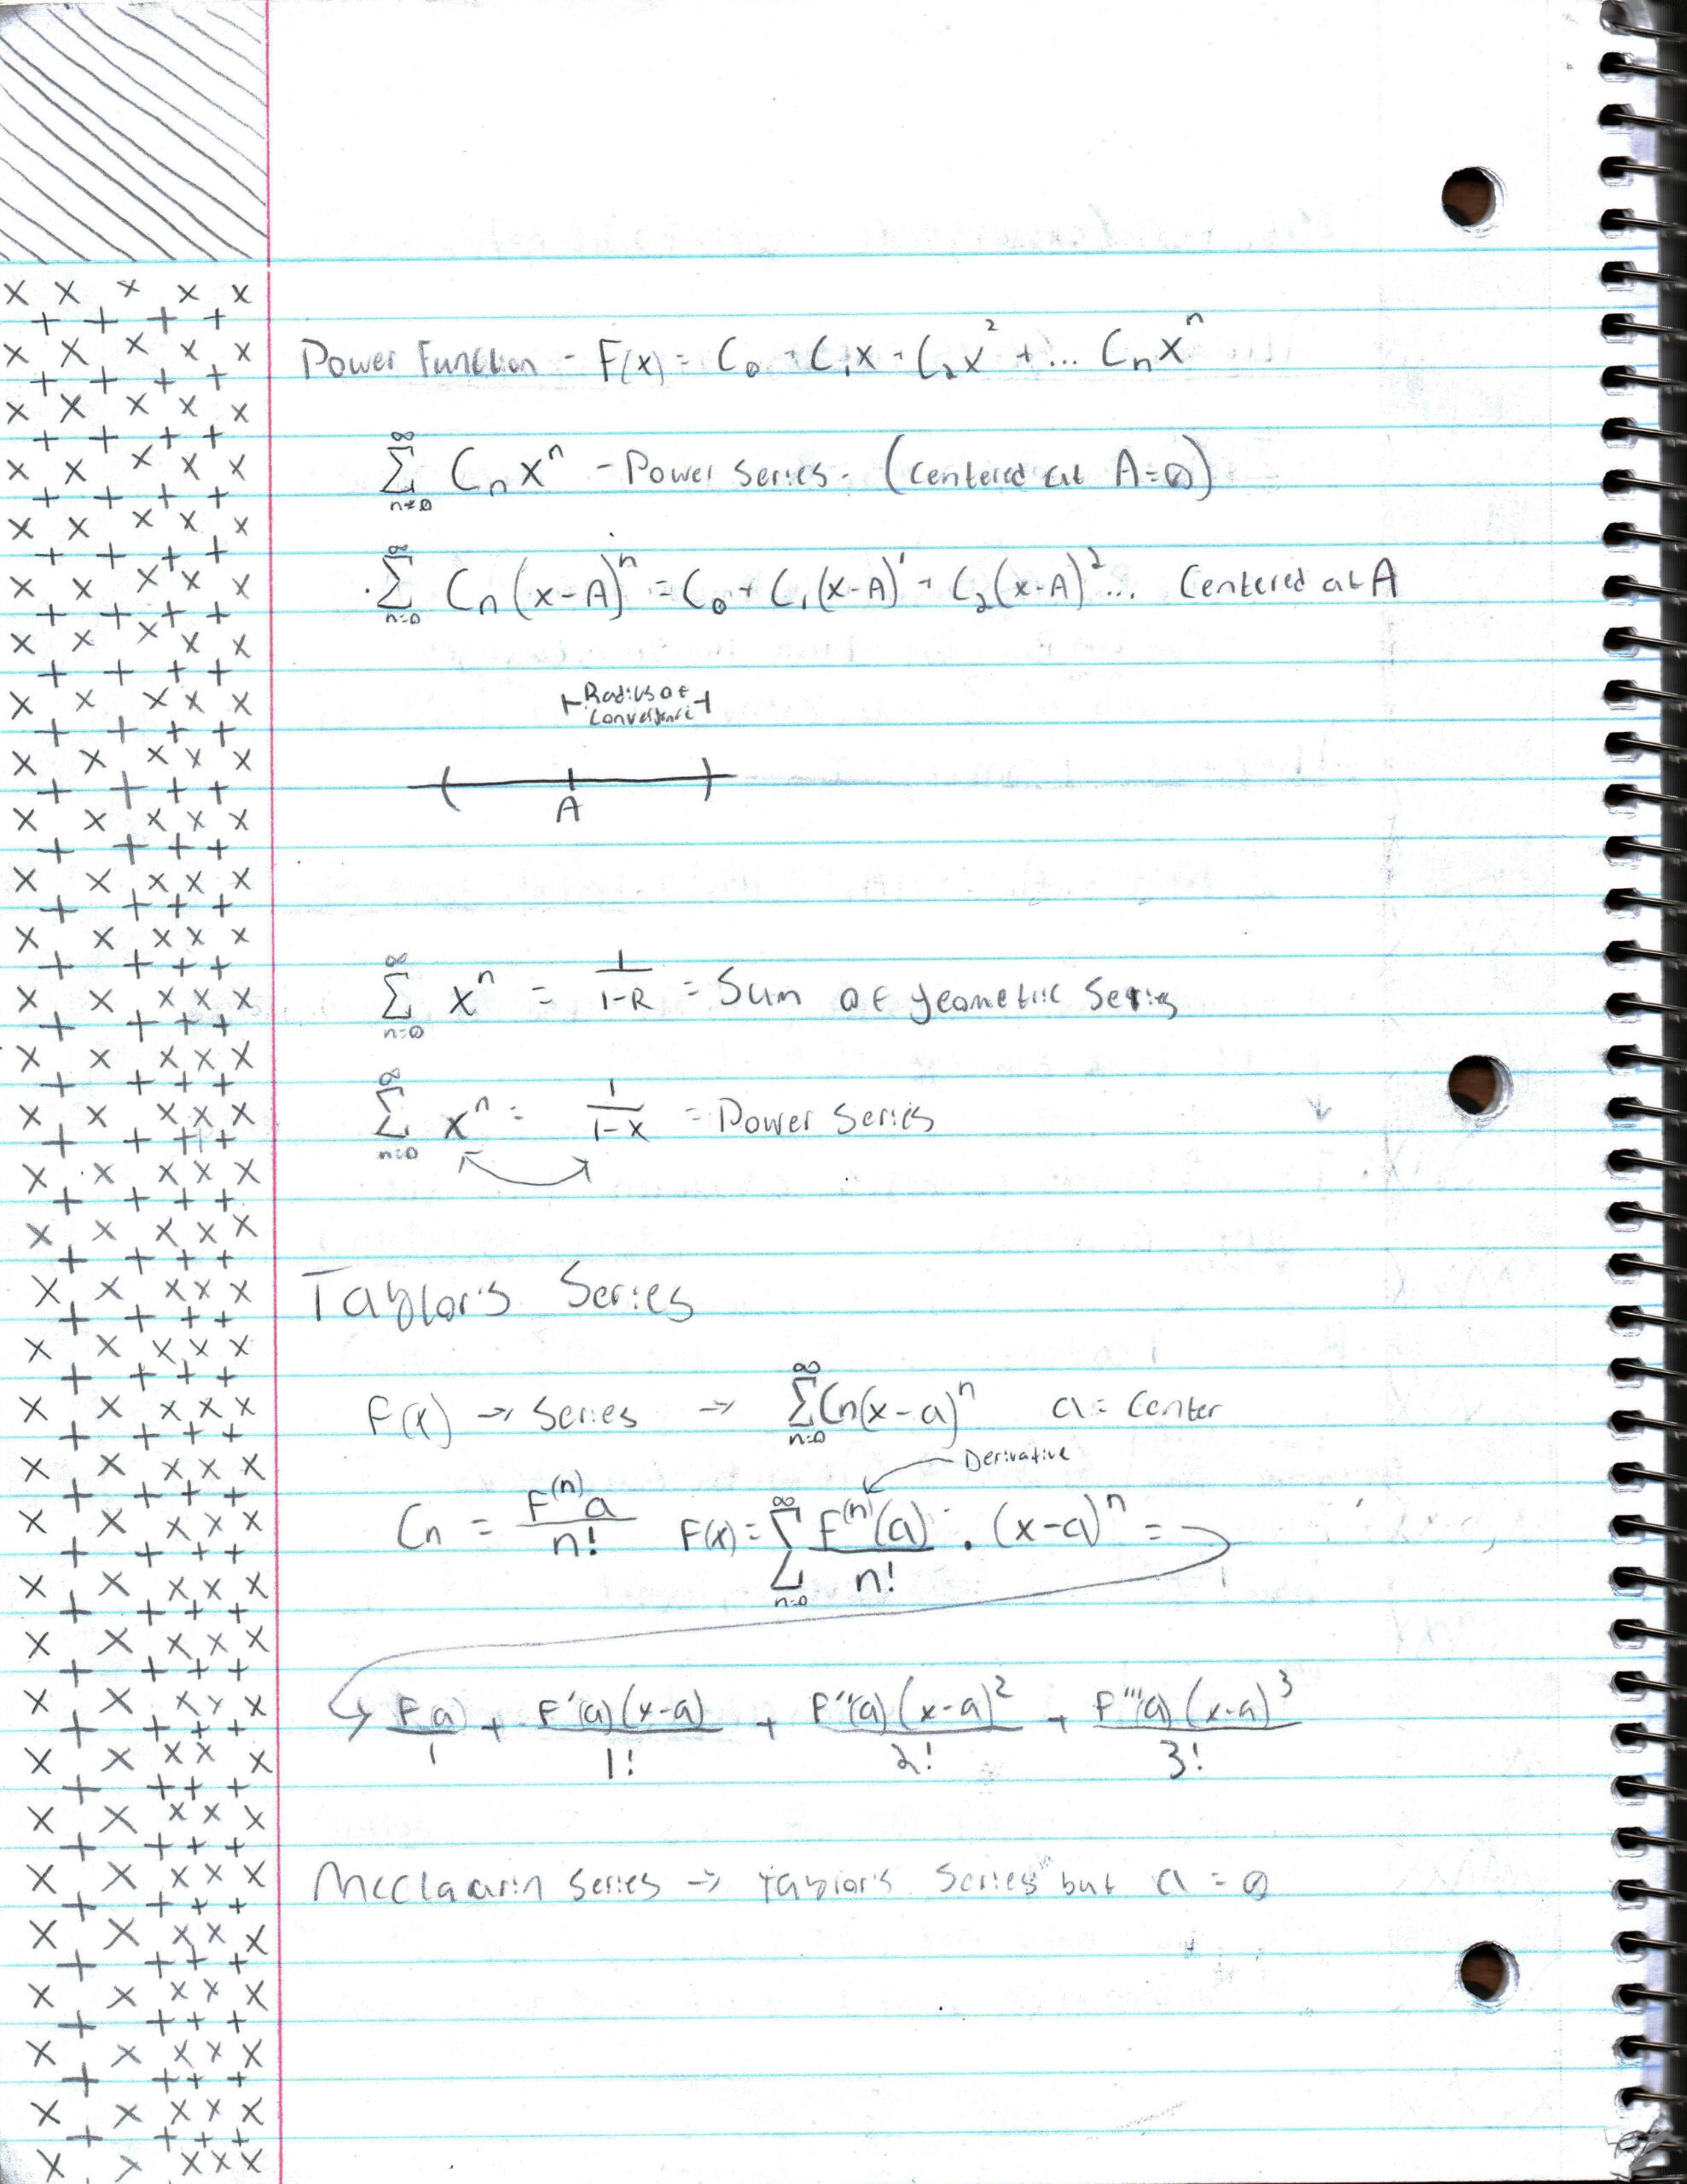 Power Function - F(x) = C₀ + C₁x + C₂x² + ... Cₙxⁿ
∞ Σ n=0 Cₙxⁿ - Power Series - (Centered at A=0)
∞ Σ n=0 Cₙ(x-A)ⁿ = C₀ + C₁(x-A)¹ + C₂(x-A)² ... Centered at A
Radius of
Convergence
( A )
∞ Σ n=0 xⁿ = 1/(1-R) = Sum of geometric Series
∞ Σ n=0 xⁿ = 1/(1-x) = Power Series
Taylor's Series
F(x) → Series → ∞ Σ n=0 Cn(x-a)ⁿ a = Center
Derivative
Cn = F⁽ⁿ⁾a/n! F(x) = ∞ Σ n=0 F⁽ⁿ⁾(a)/n! · (x-a)ⁿ =
F(a)/1 + F'(a)(x-a)/1! + F''(a)(x-a)²/2! + F'''(a)(x-a)³/3!
McClaurin Series → Taylor's Series but a = 0